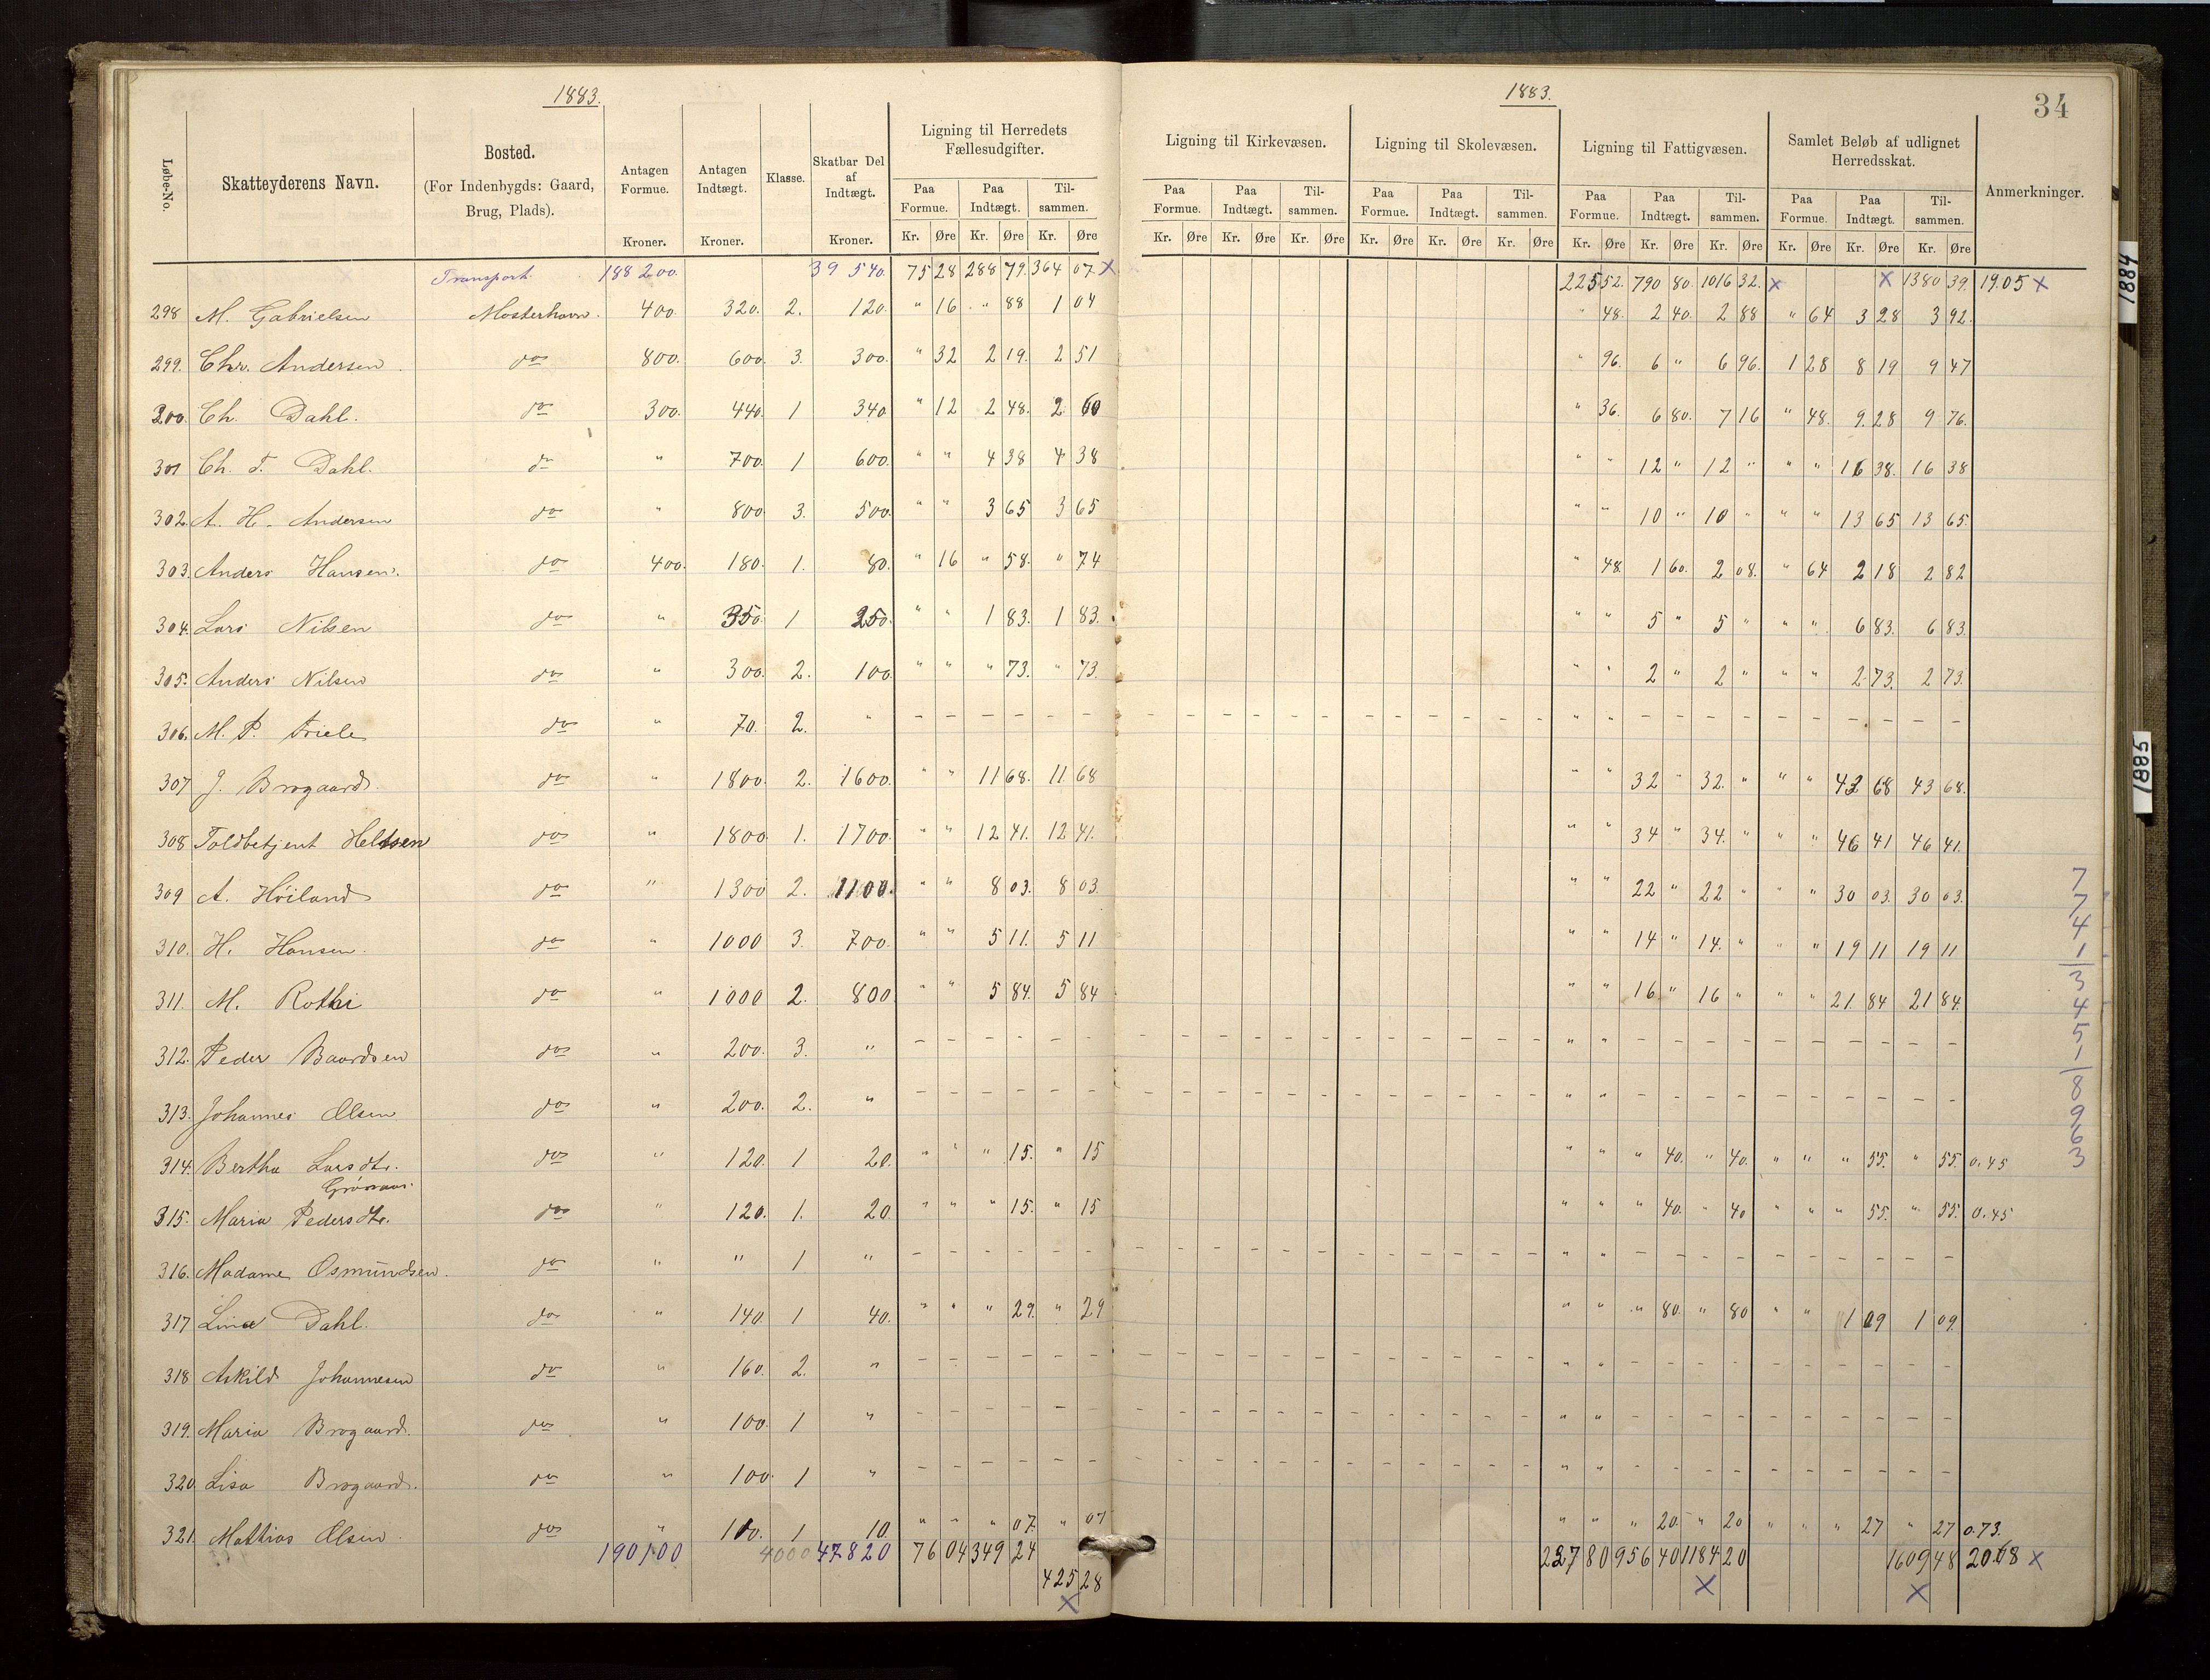 1883.
1883.
34
Løbe-No.
Skatteyderens Navn.
Bosted. (For Indenbygds: Gaard, Brug, Plads).
Antagen Formue. Kroner.
Antagen Indtægt. Kroner.
Klasse.
Skatbar Del af Indtægt. Kroner.
Ligning til Herredets Fællesudgifter.
Paa Formue. Paa Indtægt. Til- sammen.
Kr. Øre Kr. Øre Kr. Øre
Ligning til Kirkevæsen.
Paa Formue. Paa Indtægt. Til- sammen.
Kr. Øre Kr. Øre Kr. Øre
Ligning til Skolevæsen.
Paa Formue. Paa Indtægt. Til- sammen.
Kr. Øre Kr. Øre Kr. Øre
Ligning til Fattigvæsen.
Paa Formue. Paa Indtægt. Til- sammen.
Kr. Øre Kr. Øre Kr. Øre
Samlet Beløb af udlignet Herredsskat.
Paa Formue. Paa Indtægt. Til- sammen.
Kr. Øre Kr. Øre Kr. Øre
Anmerkninger.
Transport. 188 200. 39 540. 75 28 288 79. 364 07 X 225 52. 790 80. 1016 32. X X 1380 39. 19.05 X
298 M. Gabrielsen Mosterhavn. 400. 320. 2. 120. " 16 " 88 1 04 " 48. 2 40. 2 88 " 64 3 28 3 92.
299. Chr. Andersen do 800. 600. 3. 300. " 32 2 19. 2 51 " 96. 6 " 6 96. 1 28 8 19 9 47
300. Ch. Dahl. do 300. 440. 1 340. " 12 2 48. 2 60 " 36. 6 80. 7 16 " 48. 9.28 9 76.
301 Ch. T. Dahl. do " 700. 1 600. " " 4 38 4 38 " " 12 " 12 " " " 16 38. 16 38
302. A. H. Andersen do " 800. 3. 500. " " 3 65 3 65 " " 10 " 10 " " " 13 65 13 65.
303. Anders Hansen. do 400. 180. 1. 80. " 16 " 58. " 74 " 48. 1 60. 2 08. " 64 2 18 2 82
304. Lars Nilsen do " 350. 1 250. " " 1 83. 1 83. " " 5 " 5 " " " 6 83. 6 83.
305. Anders Nilsen do " 300. 2. 100. " " " 73. " 73. " " 2 " 2 " " " 2 73. 2 73.
306. M. P. Friele do " 70. 2. " – – – – – – – – – – – – – – – – – – " " – – – – – – – – – –
307 J. Brogaard. do " 1800. 2. 1600. " " 11 68. 11 68 " " 32 " 32. " " " 43 68 43 68.
308 Toldbetjent Heltsen do " 1800. 1. 1700. " " 12 41. 12 41. " " 34 " 34. " " " 46 41 46 41.
309 A. Høiland do " 1300 2. 1100. " " 8 03. 8 03. " " 22 " 22 " " " 30 03. 30 03.
310. H. Hansen. do " 1000 3. 700. " " 5 11. 5 11 " " 14 " 14. " " " 19 11 19 11
311. M. Rothi do " 1000 2. 800 " " 5 84. 5 84 " " 16 " 16 " " " 21. 84 21 84.
312. Peder Baardsen do " 200. 3. " – – – – – – – – – – – – – – – – – – " " – – – – – – – – – –
313. Johannes Olsen do " 200. 2. " – – – – – – – – – – – – – – – – – – " " – – – – – – – – – –
314. Bertha Larsdtr. do " 120. 1 20. " " " 15. " 15 " " " 40. " 40. " " " 55. " 55. 0.45
315. Maria Pedersdtr. do " 120. 1. 20. " " " 15. " 15 " " " 40. " 40 " " " 55. " 55. 0.45
316. Madame Osmundsen. do " " 1 " – – – – – – – – – – – – – – – – – – " " – – – – – – – – – –
317 Lina Dahl. do " 140. 1 40. " " " 29. " 29 " " " 80. " 80 " " 1 09 1 09.
318 Askild Johannesen do " 160. 2. " – – – – – – – – – – – – – – – – – – " " – – – – – – – – – –
319. Maria Brogaard. do " 100. 1 " – – – – – – – – – – – – – – – – – – " " – – – – – – – – – –
320. Lisa Brogaard. do " 100. 1 " – – – – – – – – – – – – – – – – – – " " – – – – – – – – – –
321. Mathias Olsen. do " 110. 1 10. " " " 07. " 07 " " " 20. " 20 " " " 27 " 27 0.73.
190100 4000 47820 76 04 349 24 227 80 956 40 1184 20 1609 48 20.68 X
425 28
X X X
7
7
4
1
3
4
5
1
8
9
6
3
1884
1885